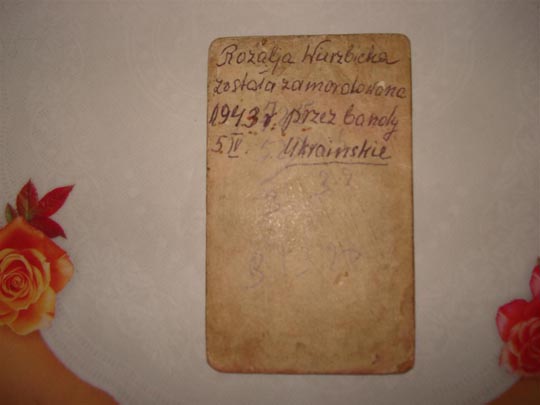 Rozalja Wurzbicka
została zamordowana
1943 r. przez bandy
5.IV. Ukraińskie